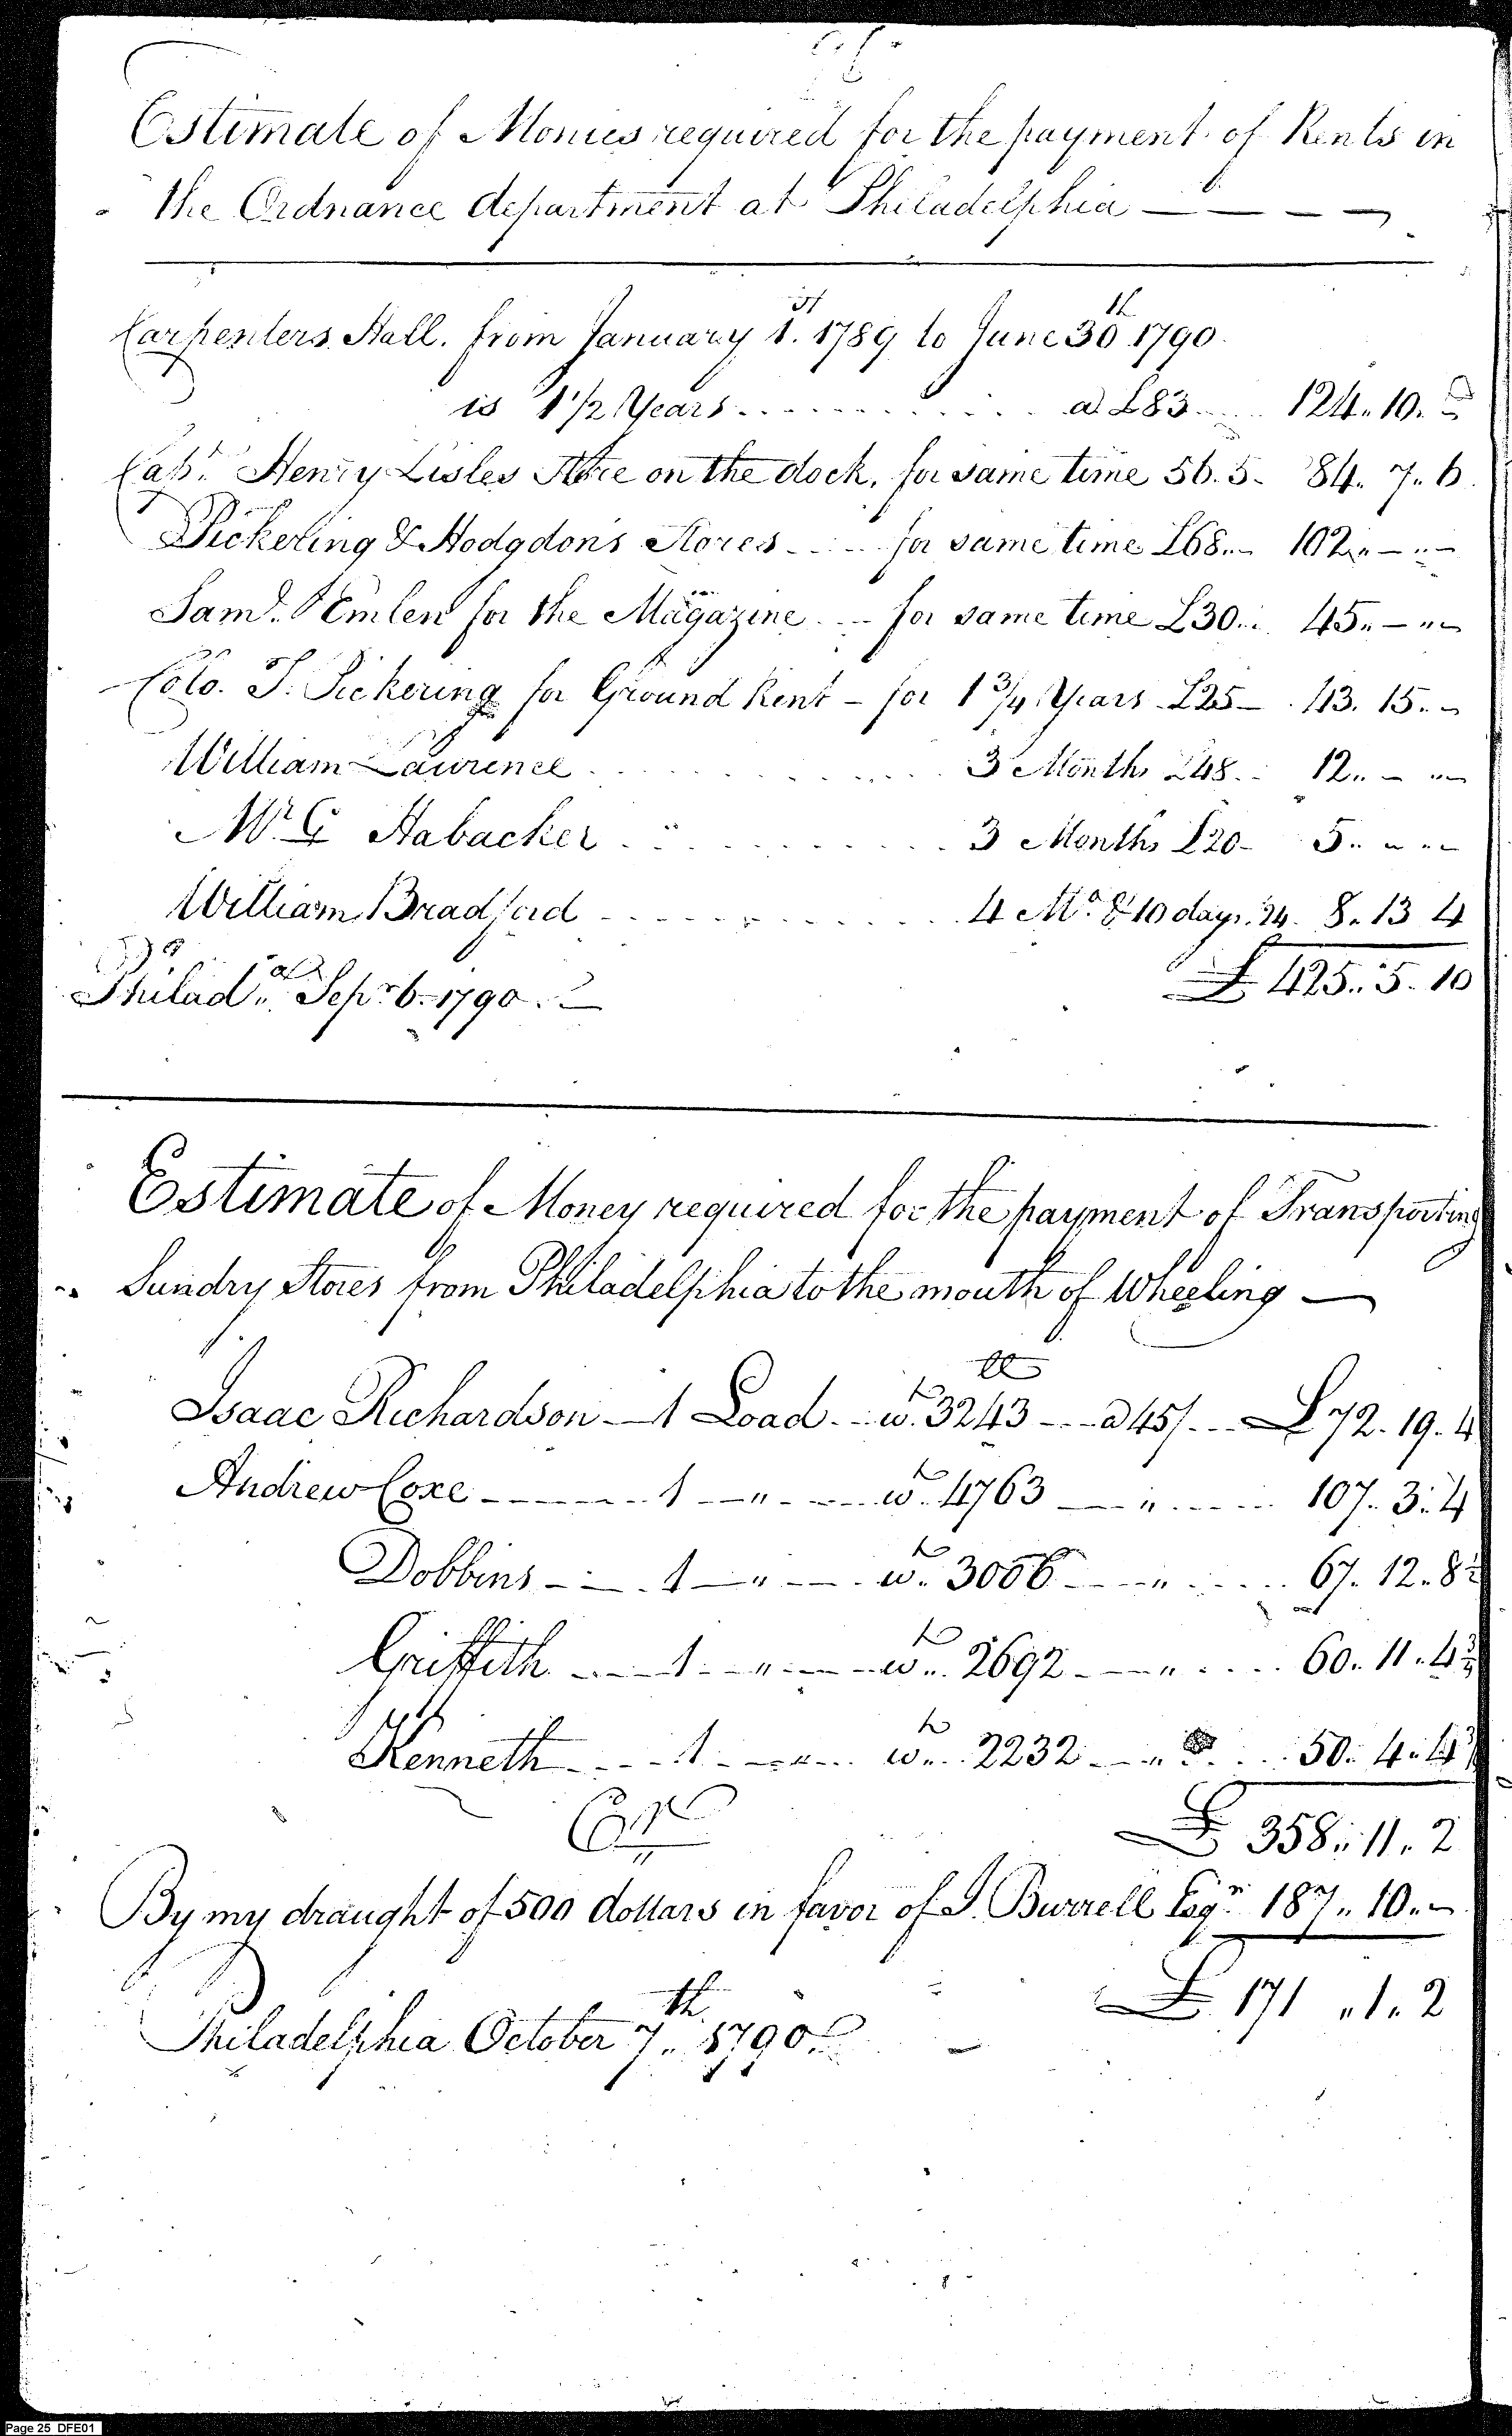 Estimate of Monies required for the payment of Rents in
the Ordnance department at Philadelphia
Carpenters Hall. from January 1.st 1789 to June 30th 1790.
is 1 1/2 Years a £83 124.10.
Capt. Henry Lisles Store on the dock, for same time 56.5. 84.7.6.
Pickering & Hodgdons Stores for same time £68 102.
Saml. Emlen for the Magazine for same time £30 45.
Colo. T. Pickering for Ground Rent – for 1 3/4 Years £25 43.15.
William Laurence 3 Months £48 12.
Mr. G Habacker 3 Months £20 5.
William Bradford 4 Mo. & 10 days. 24. 8.13 4
£ 425.5.10
Philada. Sepr. 6. 1790.
Estimate of Money required for the payment of Transporting
Sundry Stores from Philadelphia to the mouth of Wheeling
Isaac Richardson 1 Load wt. 3243 a 45/. £72.19.4
Andrew Coxe 1 " wt. 4763 " 107.3.4
Dobbins 1 " wt. 3006 " 67.12.8
Griffith 1 " wt. 2692 " 60.11.4
Kenneth 1 " wt. 2232 " 50.4.4
£ 358.11.2
Cr
By my draught of 500 dollars in favor of J. Burrell Esqr. 187.10.
£ 171.1.2
Philadelphia October 7th. 1790.
Page 25 DFE01